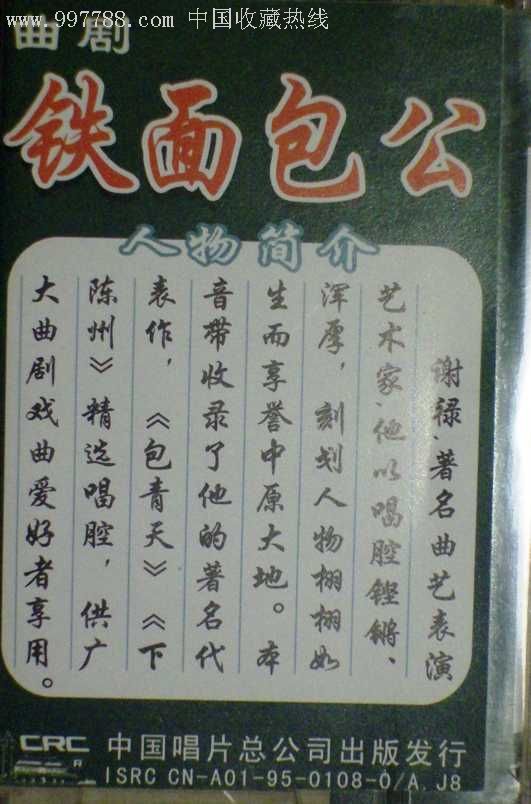 www.997788.com 中国收藏热线
曲剧
铁面包公
人物简介
谢禄、著名曲艺表演
艺术家、他以唱腔铿锵、
浑厚，刻划人物栩栩如
生而享誉中原大地。本
音带收录了他的著名代
表作，《包青天》《下
陈州》精选唱腔，供广
大曲剧戏曲爱好者享用。
CRC 中国唱片总公司出版发行
ISRC CN-A01-95-0108-0/A.J8